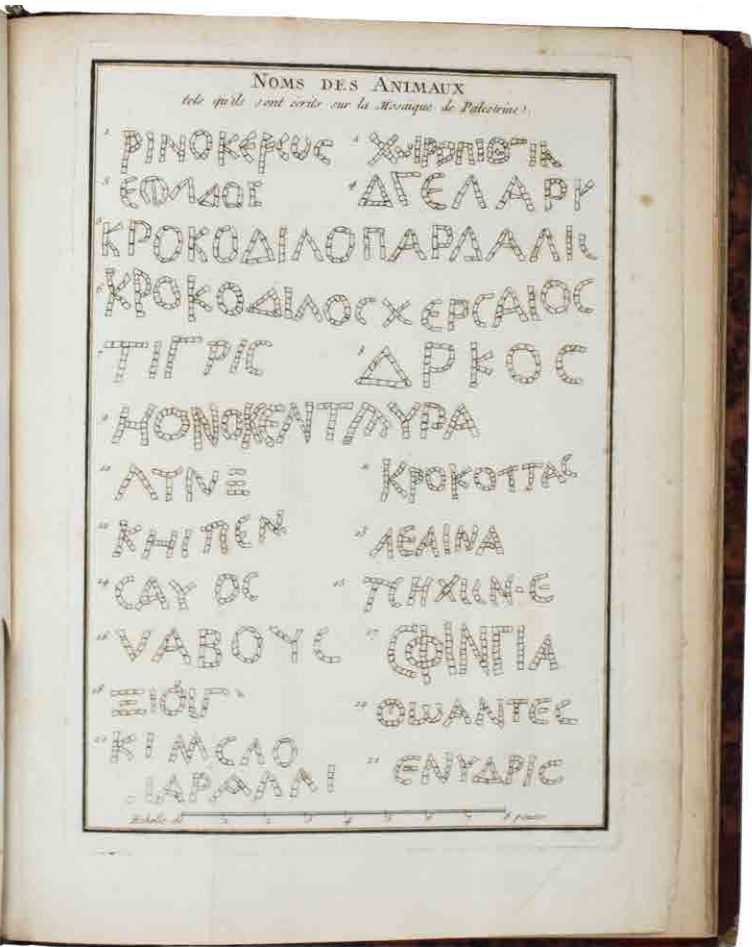 NOMS DES ANIMAUX
tels qu'ils sont écrits sur la Mosaique de Palestrine.
1. ΡΙΝΟΚΕΡΩϹ 2.
3. 4. ΔΓΕΛΑΡΥ
5. ΚΡΟΚΟΔΙΛΟΠΑΡΔΑΛΙϹ
6. ΚΡΟΚΟΔΙΛΟϹ ΧΕΡϹΑΙΟϹ
7. ΤΙΓΡΙϹ 8. ΔΡΚΟϹ
9. ΗΟΝΟΚΕΝΤΑΥΡΑ
10. ΛΥΝΞ 11. ΚΡΟΚΟΤΤΑϹ
12. ΚΗΙΠΕΝ 13. ΛΕΑΙΝΑ
14. ϹΑΥ ΟϹ 15.
16. ΑΒΟΥϹ 17. ϹΦΙΝΓΙΑ
18. ΞΙΟΙΓ ΘΩΑΝΤΕϹ
21. ΕΝΥΔΡΙϹ
Echelle de 1 2 3 4 5 6 7 8 pouces